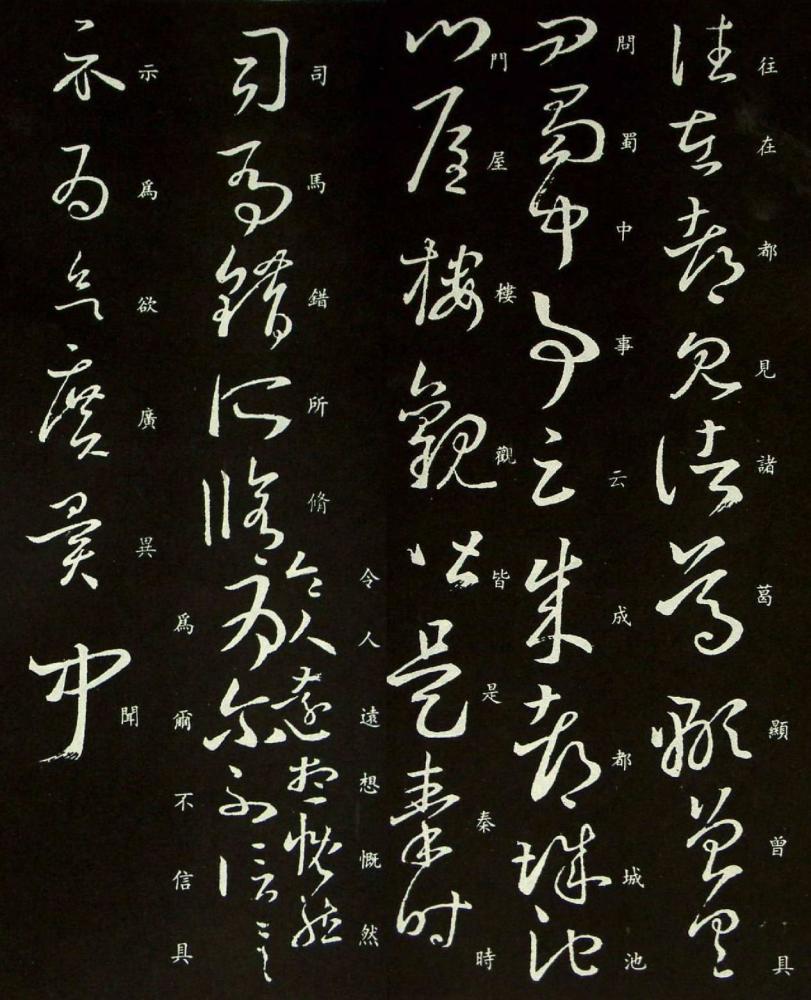 往在都見諸葛顯曾具
問蜀中事云成都城池
門屋樓觀皆是秦時
司馬錯所脩
令人遠想慨然
爲爾不信具
示爲欲廣異聞